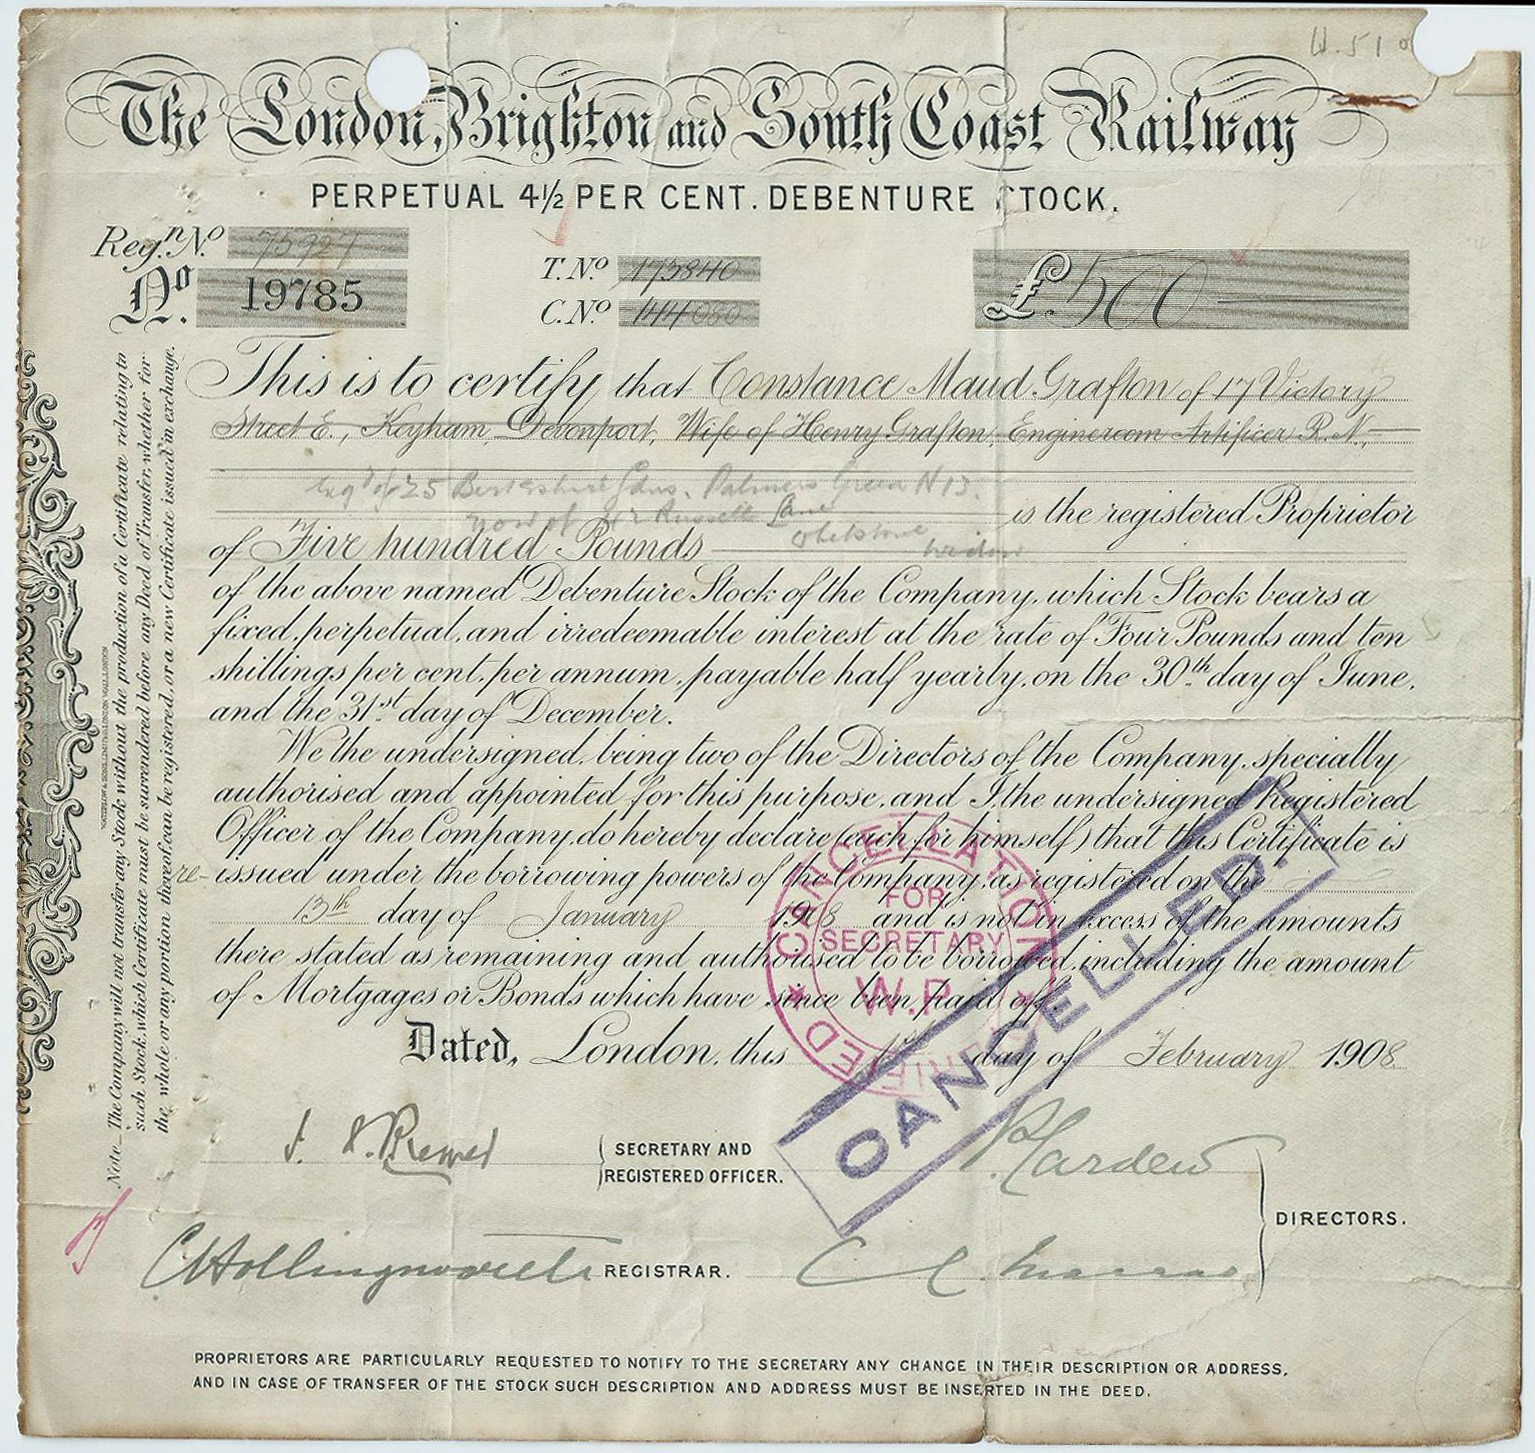 The London, Brighton and South Coast Railway
PERPETUAL 4½ PER CENT. DEBENTURE STOCK.
Reg.n No 75927
No. 19785
T. No 173840
C. No 44080
£ 500
This is to certify that Constance Maud Grafton of 17 Victory
Street E., Keyham, Devonport, Wife of Henry Grafton, Engineroom Artificer R.N.,
of 25 Berkshire Gdns. Palmers Green N13.
now of Russell Lane
Whetstone widow
is the registered Proprietor
of Five hundred Pounds
of the above named Debenture Stock of the Company, which Stock bears a
fixed, perpetual, and irredeemable interest at the rate of Four Pounds and ten
shillings per cent. per annum, payable half yearly, on the 30th day of June,
and the 31st day of December.
We the undersigned, being two of the Directors of the Company, specially
authorised and appointed for this purpose, and I, the undersigned Registered
Officer of the Company, do hereby declare (each for himself) that this Certificate is
re-issued under the borrowing powers of the Company, as registered on the
13th day of January 1908 and is not in excess of the amounts
there stated as remaining and authorised to be borrowed, including the amount
of Mortgages or Bonds which have since been paid off.
Dated, London, this day of February 1908
CANCELLATION
FOR
SECRETARY
W.P.
VERIFIED
CANCELLED.
SECRETARY AND
REGISTERED OFFICER.
DIRECTORS.
C Hollingworth REGISTRAR.
PROPRIETORS ARE PARTICULARLY REQUESTED TO NOTIFY TO THE SECRETARY ANY CHANGE IN THEIR DESCRIPTION OR ADDRESS,
AND IN CASE OF TRANSFER OF THE STOCK SUCH DESCRIPTION AND ADDRESS MUST BE INSERTED IN THE DEED.
Note.—The Company will not transfer any Stock without the production of a Certificate relating to
such Stock, which Certificate must be surrendered before any Deed of Transfer, whether for
the whole or any portion thereof, can be registered, or a new Certificate issued in exchange.